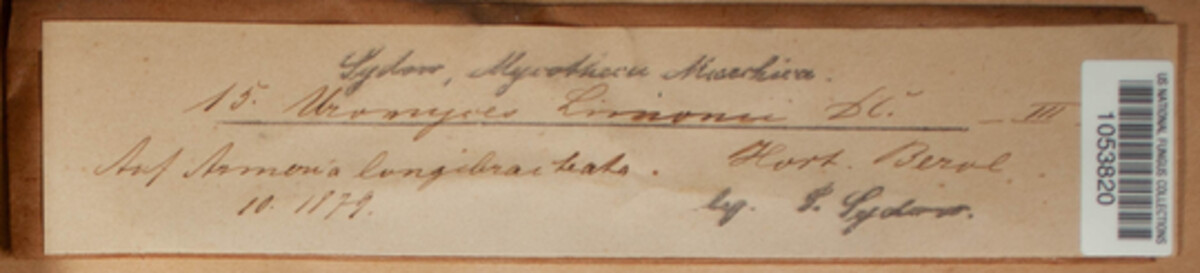 Sydow, Mycotheca Marchica.
15. Uromyces Limonii DC. — III
Auf Armeria longibracteata. Hort. Berol.
10. 1879. lg. P. Sydow.
US NATIONAL FUNGUS COLLECTIONS
1053820